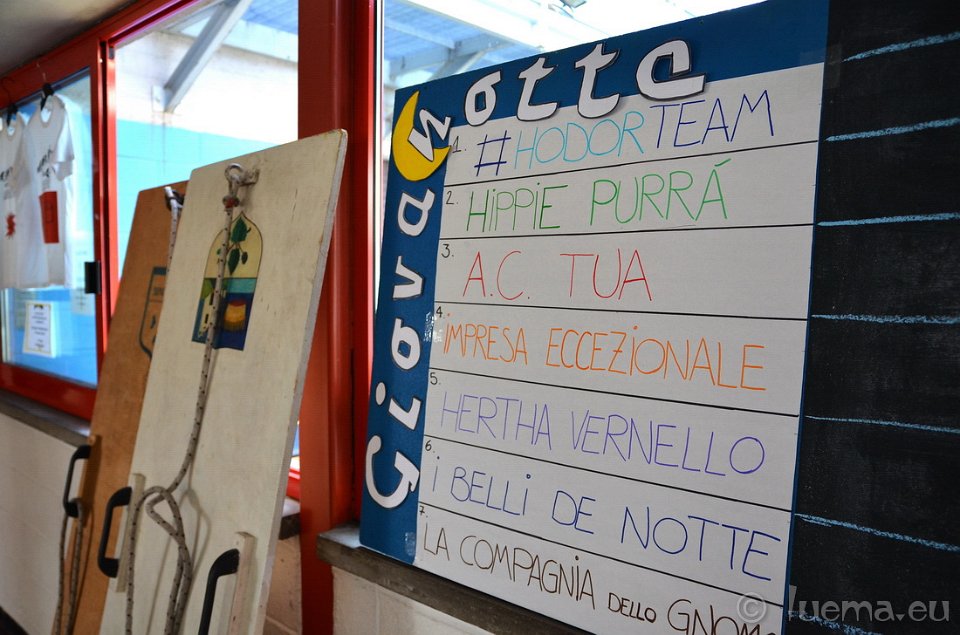 Giovanotte
1. #HODORTEAM
2. HiPPiE PURRÁ
3. A.C. TUA
4. iMPRESA ECCEZiONALE
5. HERTHA VERNELLO
6. i BELLI DE NOTTE
7. LA COMPAGNiA DELLO GNOM
© luema.eu